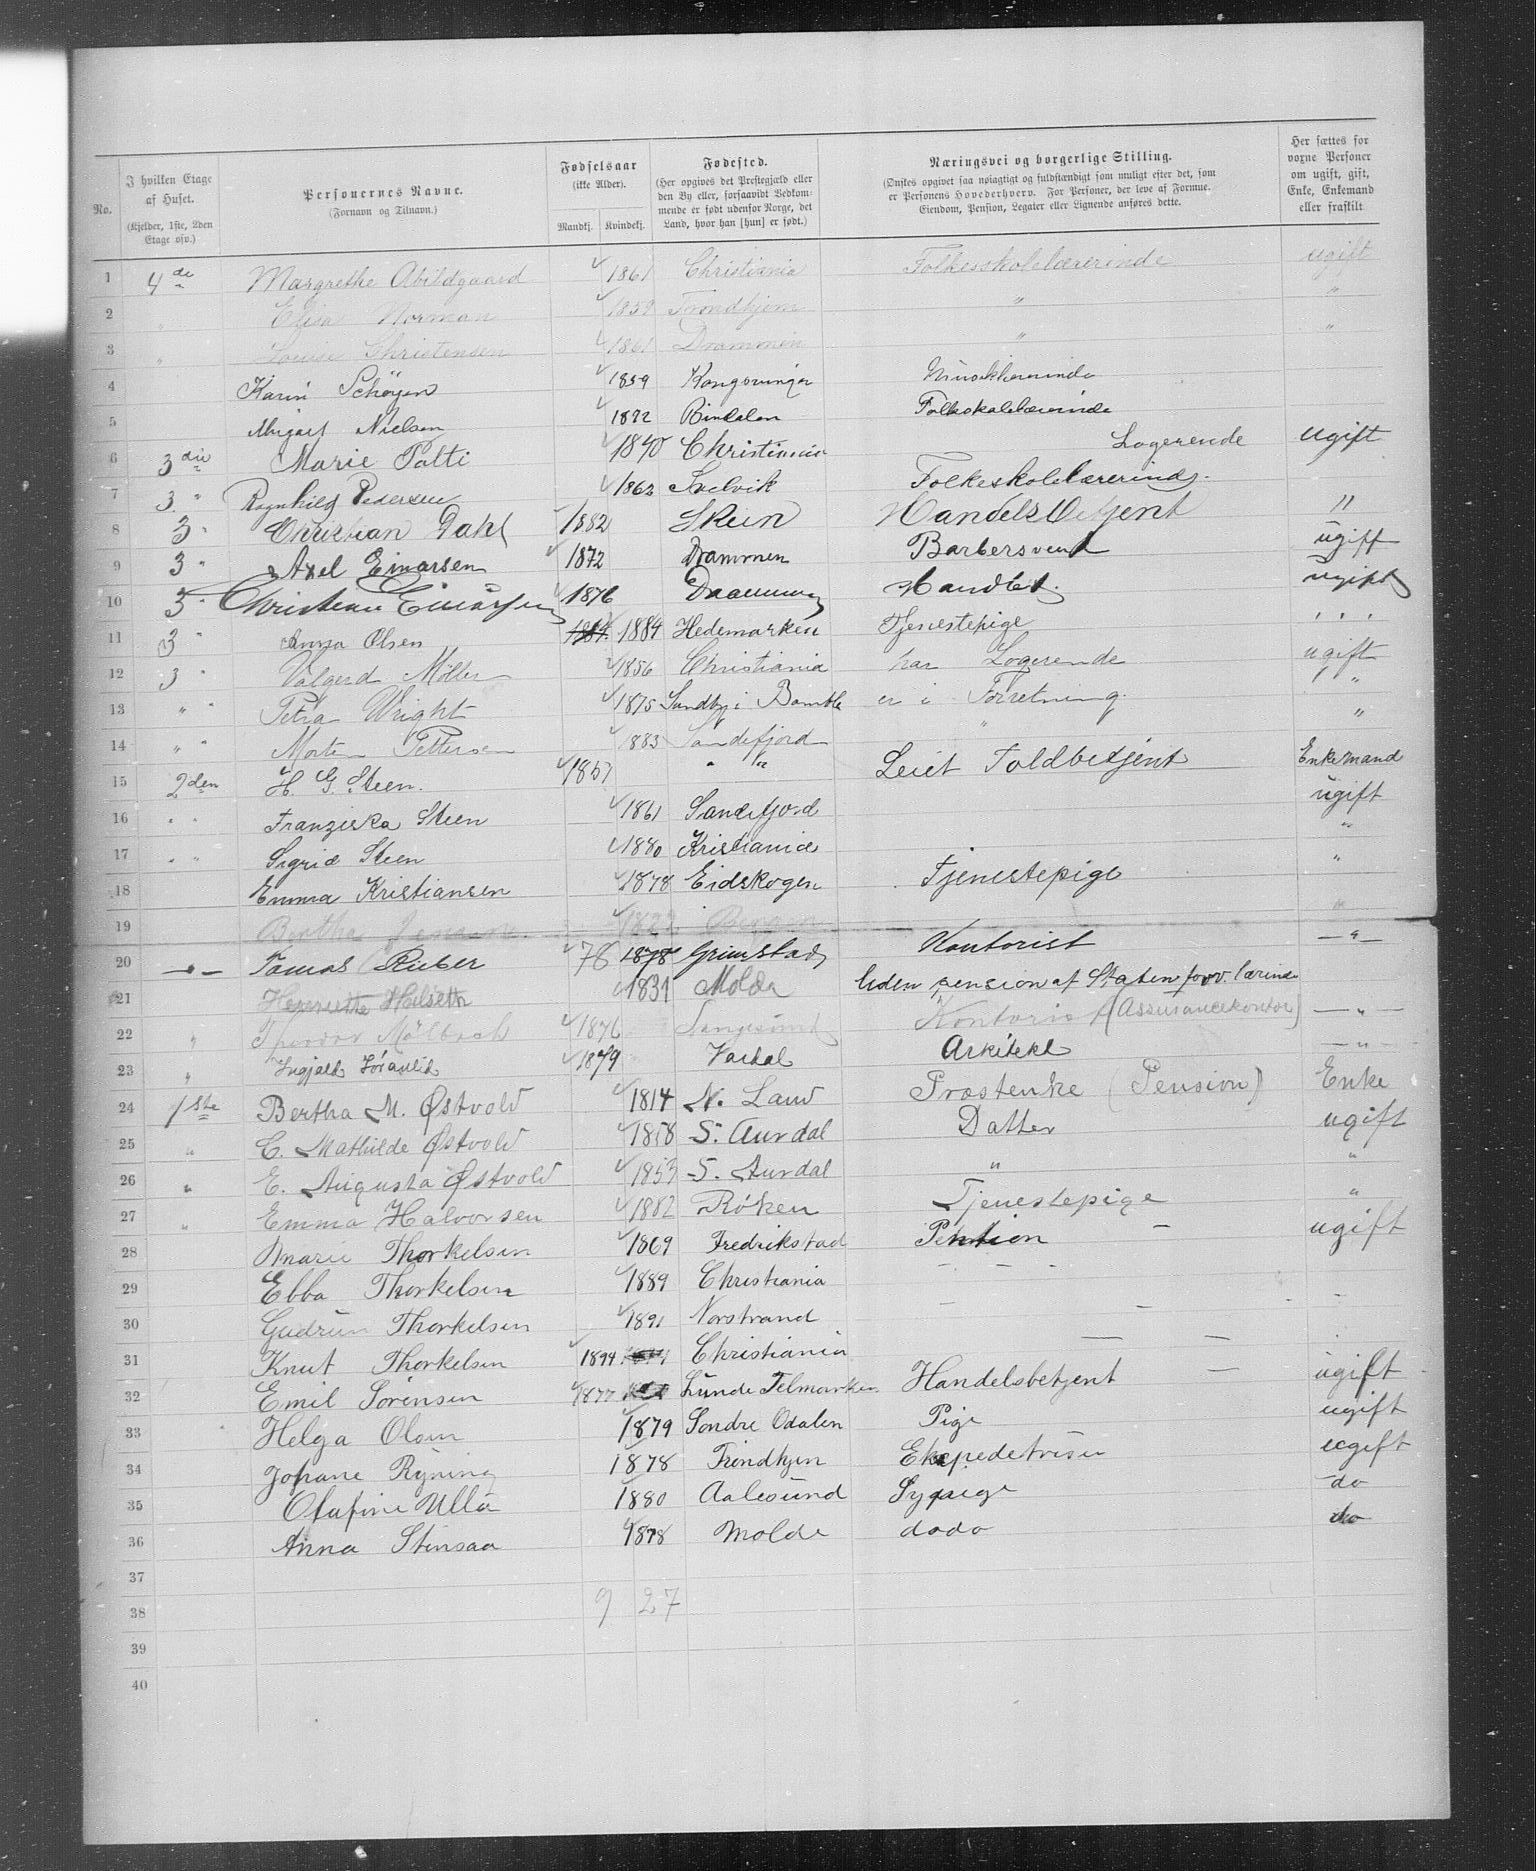 No.
I hvilken Etage af Huset. (Kjelder, 1ste, 2den Etage osv.)
Personernes Navne. (Fornavn og Tilnavn.)
Fødselsaar (ikke Alder). Mandkj. Kvindekj.
Fødested. (Her opgives det Prestegjæld eller den By eller, forsaavidt Vedkommende er født udenfor Norge, det Land, hvor han [hun] er født.)
Næringsvei og borgerlige Stilling. (Ønskes opgivet saa nøiagtigt og fuldstændigt som muligt efter det, som er Personens Hovederhverv. For Personer, der leve af Formue, Eiendom, Pension, Legater eller Lignende anføres dette.)
Her sættes for voxne Personer om ugift, gift, Enke, Enkemand eller fraskilt
1 4de Margrethe Abildgaard 1861 Christiania Folkesskolelærerinde ugift
2 " Elisa Norman 1859 Trondhjem " "
3 " Louise Christensen 1861 Drammen " "
4 Karin Schøyen 1859 Kongsvinger Musiklærerinde
5 Abigael Nielsen 1872 Rindalen Folkskolelærerinde
6 3die Marie Patti 1840 Christiania Logerende ugift
7 3 " Ragnhild Pedersen 1862 Svelvik Folkeskolelærerinde.
8 3 " Christian Dahl 1882 Skien Handelsbetjent "
9 3 " Axel Einarsen 1872 Drammen Barbersvend ugift
10 3 " Christian Einarsen 1876 Drammen Handlet ugift
11 3 " Anna Olsen 1884 Hedemarken Tjenestepige " " "
12 3 " Valgerd Møller 1856 Christiania har Logerende ugift
13 " " Petra Wright 1875 Sundby i Bamble er i Forretning. " "
14 " " Morten Pettersen 1883 Sandefjord " "
15 2den H. G. Steen. 1857 " " Leiet Toldbetjent Enkemand
16 " " Franziska Steen 1861 Sandefjord ugift
17 " " Sigrid Steen 1880 Kristiania "
18 Emma Kristiansen 1878 Eidskogen Tjenestepige "
19 Bertha Bergen "
20 — " — Tomas Rieber 78 1878 Grimstad Kontorist — " —
21 Henriette Helseth 1831 Molde Liden pension af Staten forv. lærinde
22 " Theodor Mølbach 1876 Langesund Kontorist (Assurancekontor) — " —
23 " Ingjald 1879 Vardal Arkitekt — " —
24 1ste Bertha M. Østvold 1814 N. Land Prostenke (Pension) Enke
25 " C. Mathilde Østvold 1858 S. Aurdal Datter ugift
26 " E. Augusta Østvold 1853 S. Aurdal " "
27 " Emma Halvorsen 1882 Røken Tjenestepige "
28 Marie Thorkelsen 1869 Fredrikstad Pention — ugift
29 Ebba Thorkelsen 1889 Christiania - - -
30 Gudrun Thorkelsen 1891 Norstrand — — - -
31 Knut Thorkelsen 1894 Christiania — —
32 Emil Sørensen 1877 Lunde Telmarken Handelsbetjent — ugift
33 Helga Olsen 1879 Søndre Odalen Pige ugift
34 Johane Ryning 1878 Trondhjem Ekspedetrise ugift
35 Olafine Ulla 1880 Aalesund Sypige do
36 Anna Stensaa 1878 Molde dodo do
37
38 9 27
39
40